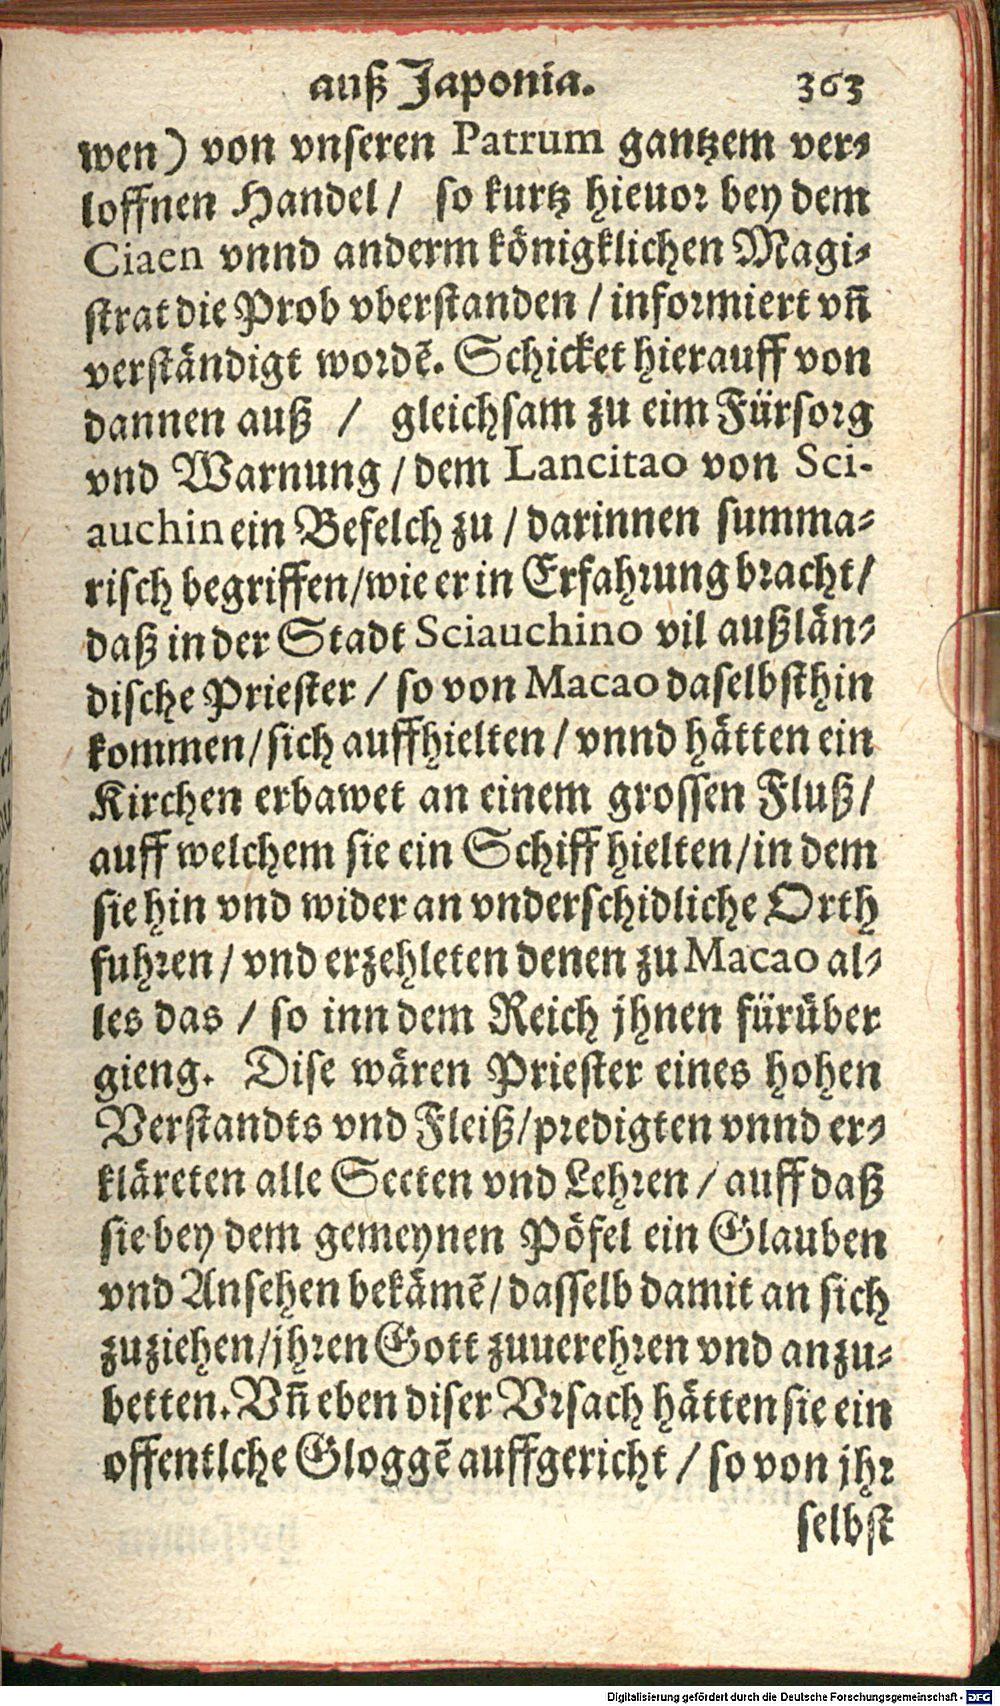 auß Japonia. 363
wen) von vnseren Patrum gantzem ver⸗
loffnen Handel/ so kurtz hieuor bey dem
Ciaen vnnd anderm königklichen Magi⸗
strat die Prob vberstanden / informiert vn̄
verständigt wordē. Schicket hierauff von
dannen auß / gleichsam zu eim Fürsorg
vnd Warnung / dem Lancitao von Sci-
auchin ein Befelch zu / darinnen summa⸗
risch begriffen/wie er in Erfahrung bracht/
daß in der Stadt Sciauchino vil außlän⸗
dische Priester / so von Macao daselbsthin
kommen/sich auffhielten / vnnd hätten ein
Kirchen erbawet an einem grossen Fluß/
auff welchem sie ein Schiff hielten/in dem
sie hin vnd wider an vnderschidliche Orth
fuhren / vnd erzehleten denen zu Macao al⸗
les das / so inn dem Reich jhnen fürüber
gieng. Dise wären Priester eines hohen
Verstandts vnd Fleiß/predigten vnnd er⸗
kläreten alle Secten vnd Lehren / auff daß
sie bey dem gemeynen Pöfel ein Glauben
vnd Ansehen bekämē/dasselb damit an sich
zuziehen/jhren Gott zuuerehren vnd anzu⸗
betten. Vn̄ eben diser Vrsach hätten sie ein
offentlche Gloggē auffgericht / so von jhr
selbst
Digitalisierung gefördert durch die Deutsche Forschungsgemeinschaft - DFG